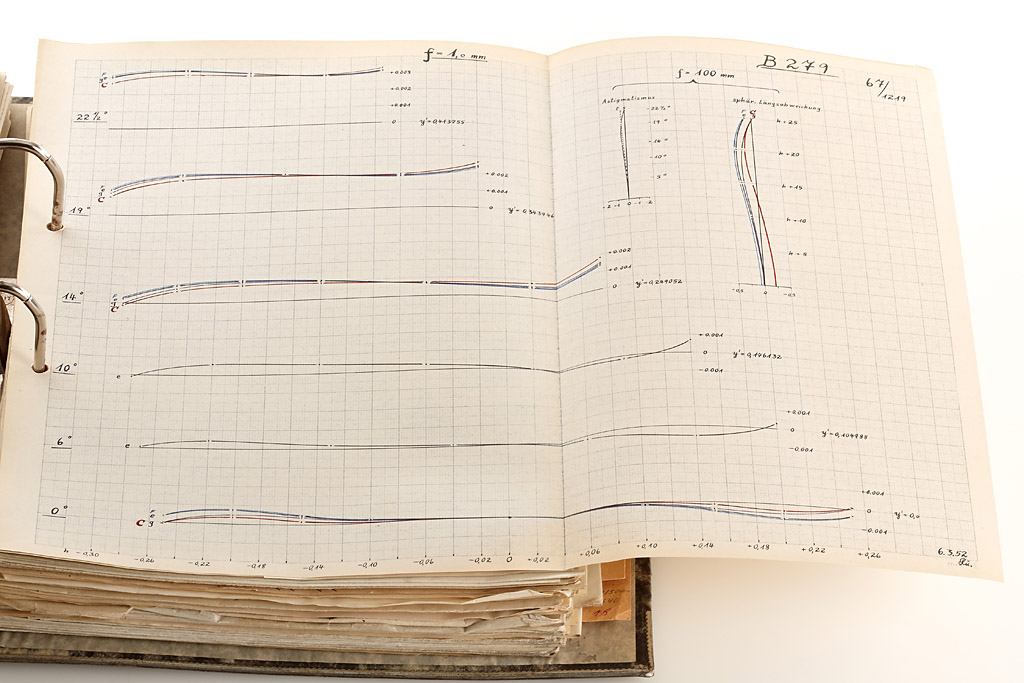 f = 1,0 mm
B 279
67/1219
f = 100 mm
Astigmatismus
sphär. Längsabweichung
22 ½°
F
e
g
C
+0.003
+0.002
+0.001
0
y' = 0,413755
19°
C
+0.002
+0.001
0
14°
C
+0.002
+0.001
0
y' = 0,249052
10°
e
+0.001
0
-0.001
y' = 0,176132
6°
e
+0.001
0
-0.001
y' = 0,104988
0°
F
e
C g
+0.001
0
-0.001
y' = 0,0
h -0,30 -0,26 -0,22 -0,18 -0,14 -0,10 -0,06 -0,02 0 +0,02 +0,06 +0,10 +0,14 +0,18 +0,22 +0,26
-22½°
-19°
-14°
-10°
-5°
-2 -1 0 -1 2
h = 25
h = 20
h = 15
h = 10
h = 5
-0,5 0
6.3.52